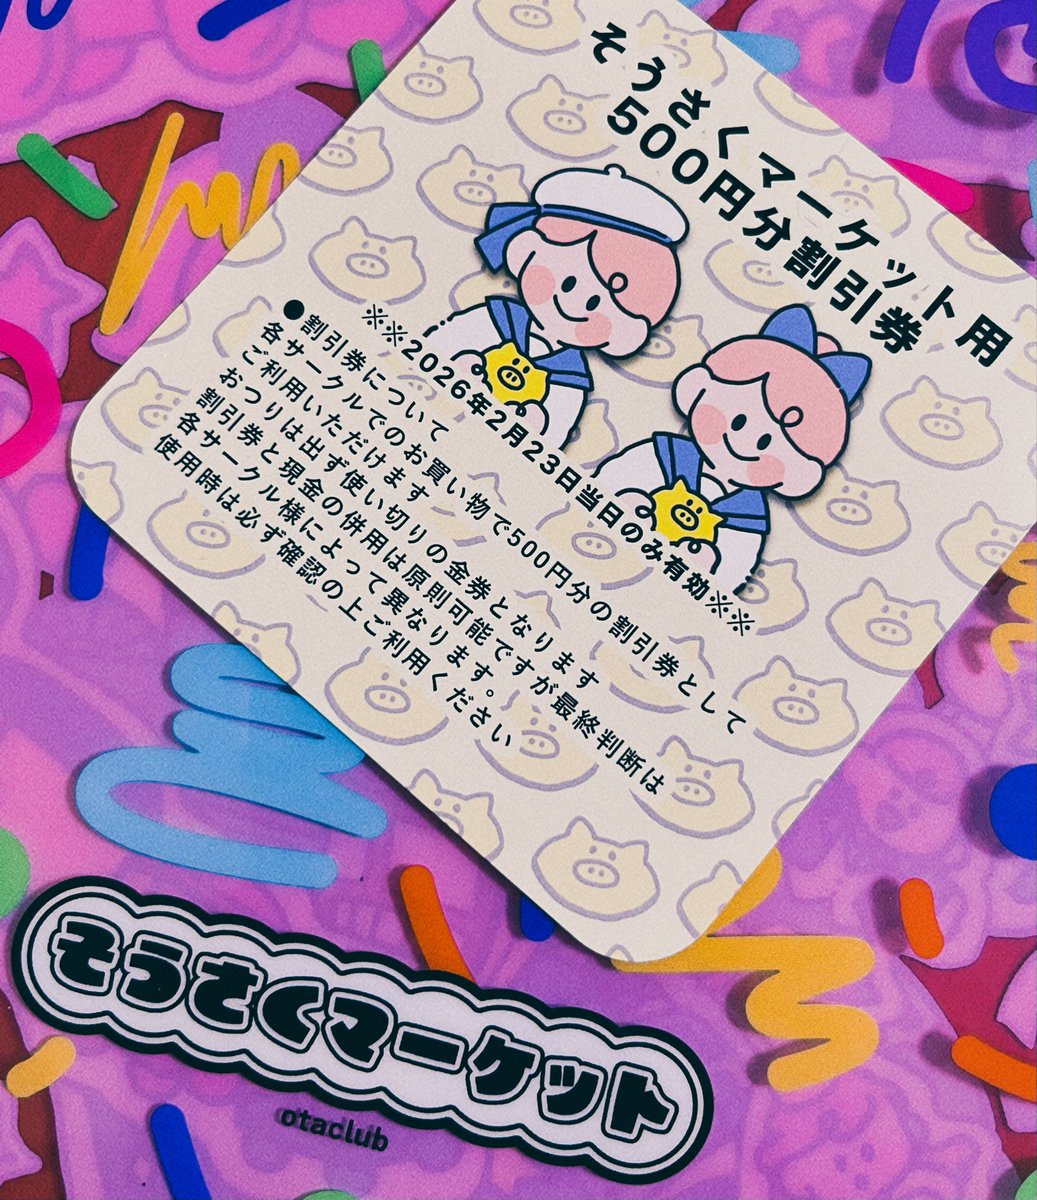 そうさくマーケット用
500円分割引券
※※2026年2月23日当日のみ有効※※
●割引券について
各サークルでのお買い物で500円分の割引券として
ご利用いただけます
おつりは出ず使い切りの金券となります
割引券と現金の併用は原則可能ですが最終判断は
各サークル様によって異なります。
使用時は必ず確認の上ご利用ください
そうさくマーケット
otaclub